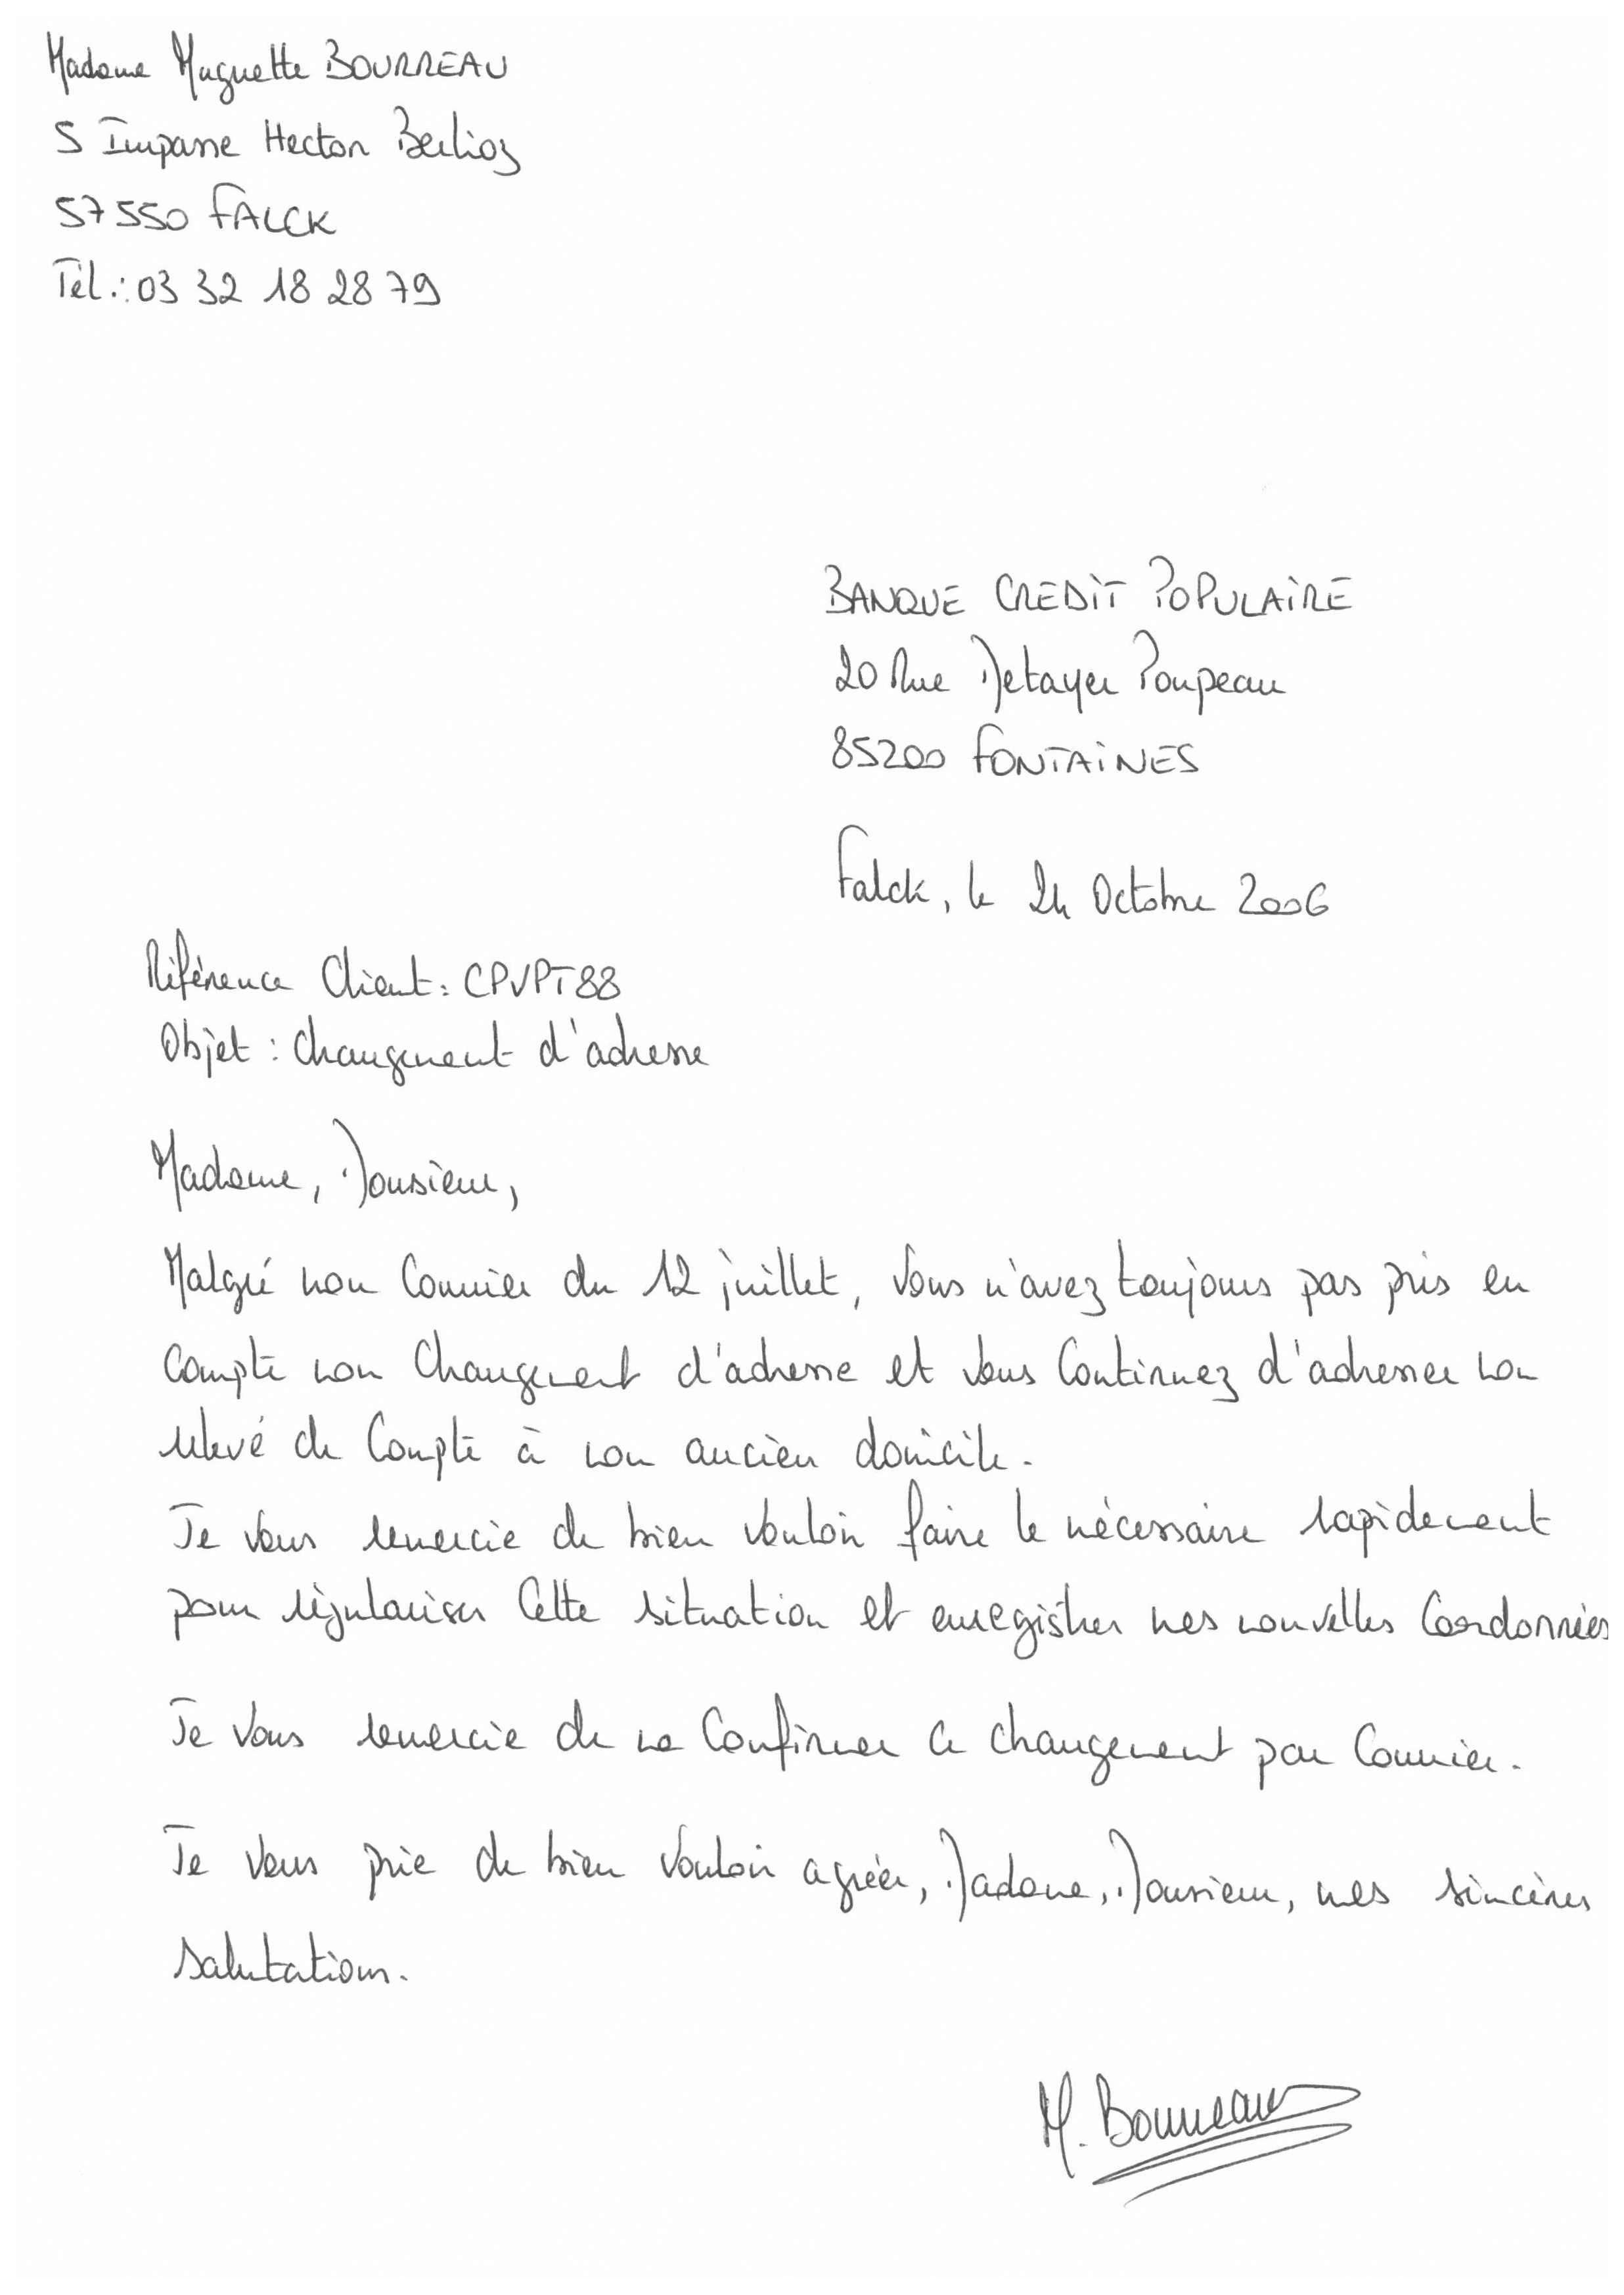 Madame Muguette BOURREAU
5 Impasse Hector Berlioz
57550 FALCK
Tél.: 03 32 18 28 79
BANQUE CREDIT POPULAIRE
20 Rue Metayer Poupeau
85200 FONTAINES
Falck, le 24 Octobre 2006
Référence Client: CPVPT88
Objet : Changement d'adresse
Madame, Monsieur,
Malgré mon Courrier du 12 juillet, Vous n'avez toujours pas pris en
Compte mon Changement d'adresse et Vous Continuez d'adresser mon
relevé de Compte à mon ancien domicile.
Je Vous remercie de bien Vouloir faire le nécessaire rapidement
pour régulariser Cette situation et enregistrer mes nouvelles Coordonnées
Je Vous remercie de me Confirmer Ce changement par Courrier.
Je Vous prie de bien Vouloir agréer, Madame, Monsieur, mes sincères
salutations.
M. Bourreau